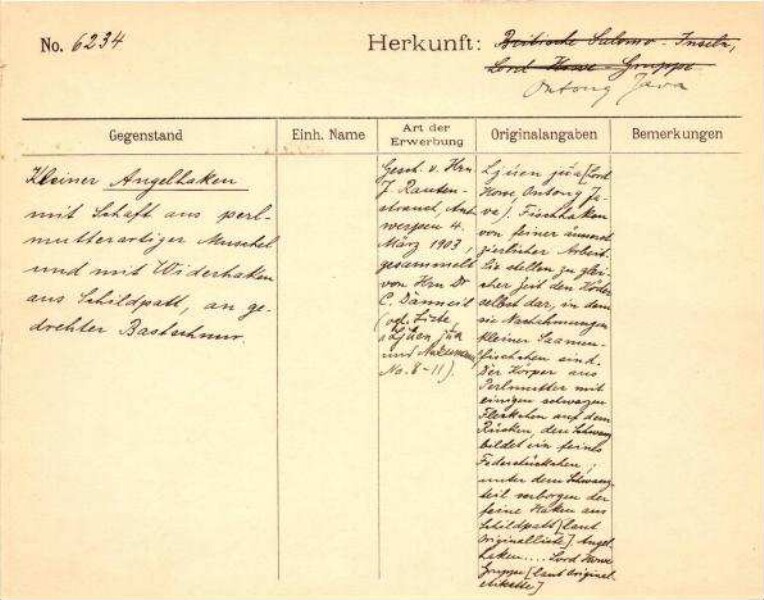 No. 6234
Herkunft: Britische Salomo-Inseln,
Lord Howe-Gruppe
Ontong Java
Gegenstand
Einh. Name
Art der
Erwerbung
Originalangaben
Bemerkungen
Kleiner Angelhaken
mit Schaft aus perl-
mutterartiger Muschel
und mit Widerhaken
aus Schildpatt, an ge-
drehter Bastschnur.
Gesch. v. Hrn
J. Rauten-
strauch, Ant-
werpen 4.
März 1903,
gesammelt
von Hrn Dr
C. Danneil
(vgl. Liste
Ljüen jüa
und
No. 8-11).
Ljüen jüa [Lord
Howe, Ontong Ja-
va]. Fischhaken
von feiner äusserst
zierlicher Arbeit.
Sie stellen zu glei-
cher Zeit den Köder
selbst dar, in dem
sie Nachahmungen
kleiner Saamen-
fischchen sind.
Der Körper aus
Perlmutter mit
einigen schwarzen
Fleckchen auf dem
Rücken, den Schwanz
bildet ein feines
Federstückchen;
unter dem Schwanz-
teil verborgen der
feine Haken aus
Schildpatt [laut
Originalliste] Angel-
haken.... Lord Howe
Gruppe [laut Original-
etikette]